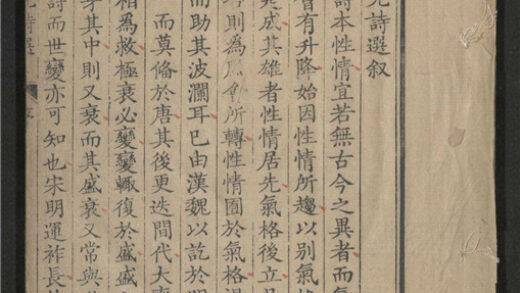 元詩選叙
詩本性情宜若無古今之異者而氣
有升降始因性情所趨以別氣格
成其雄者性情居先氣格後立
則為所轉性情囿於氣格
而助其波瀾耳已由漢魏以訖於
而莫偹於唐其後更迭間代大
相為救極衰必變變輙復於盛盛
其中則又衰而其盛衰又常與
詩而世變亦可知也宋明運祚長